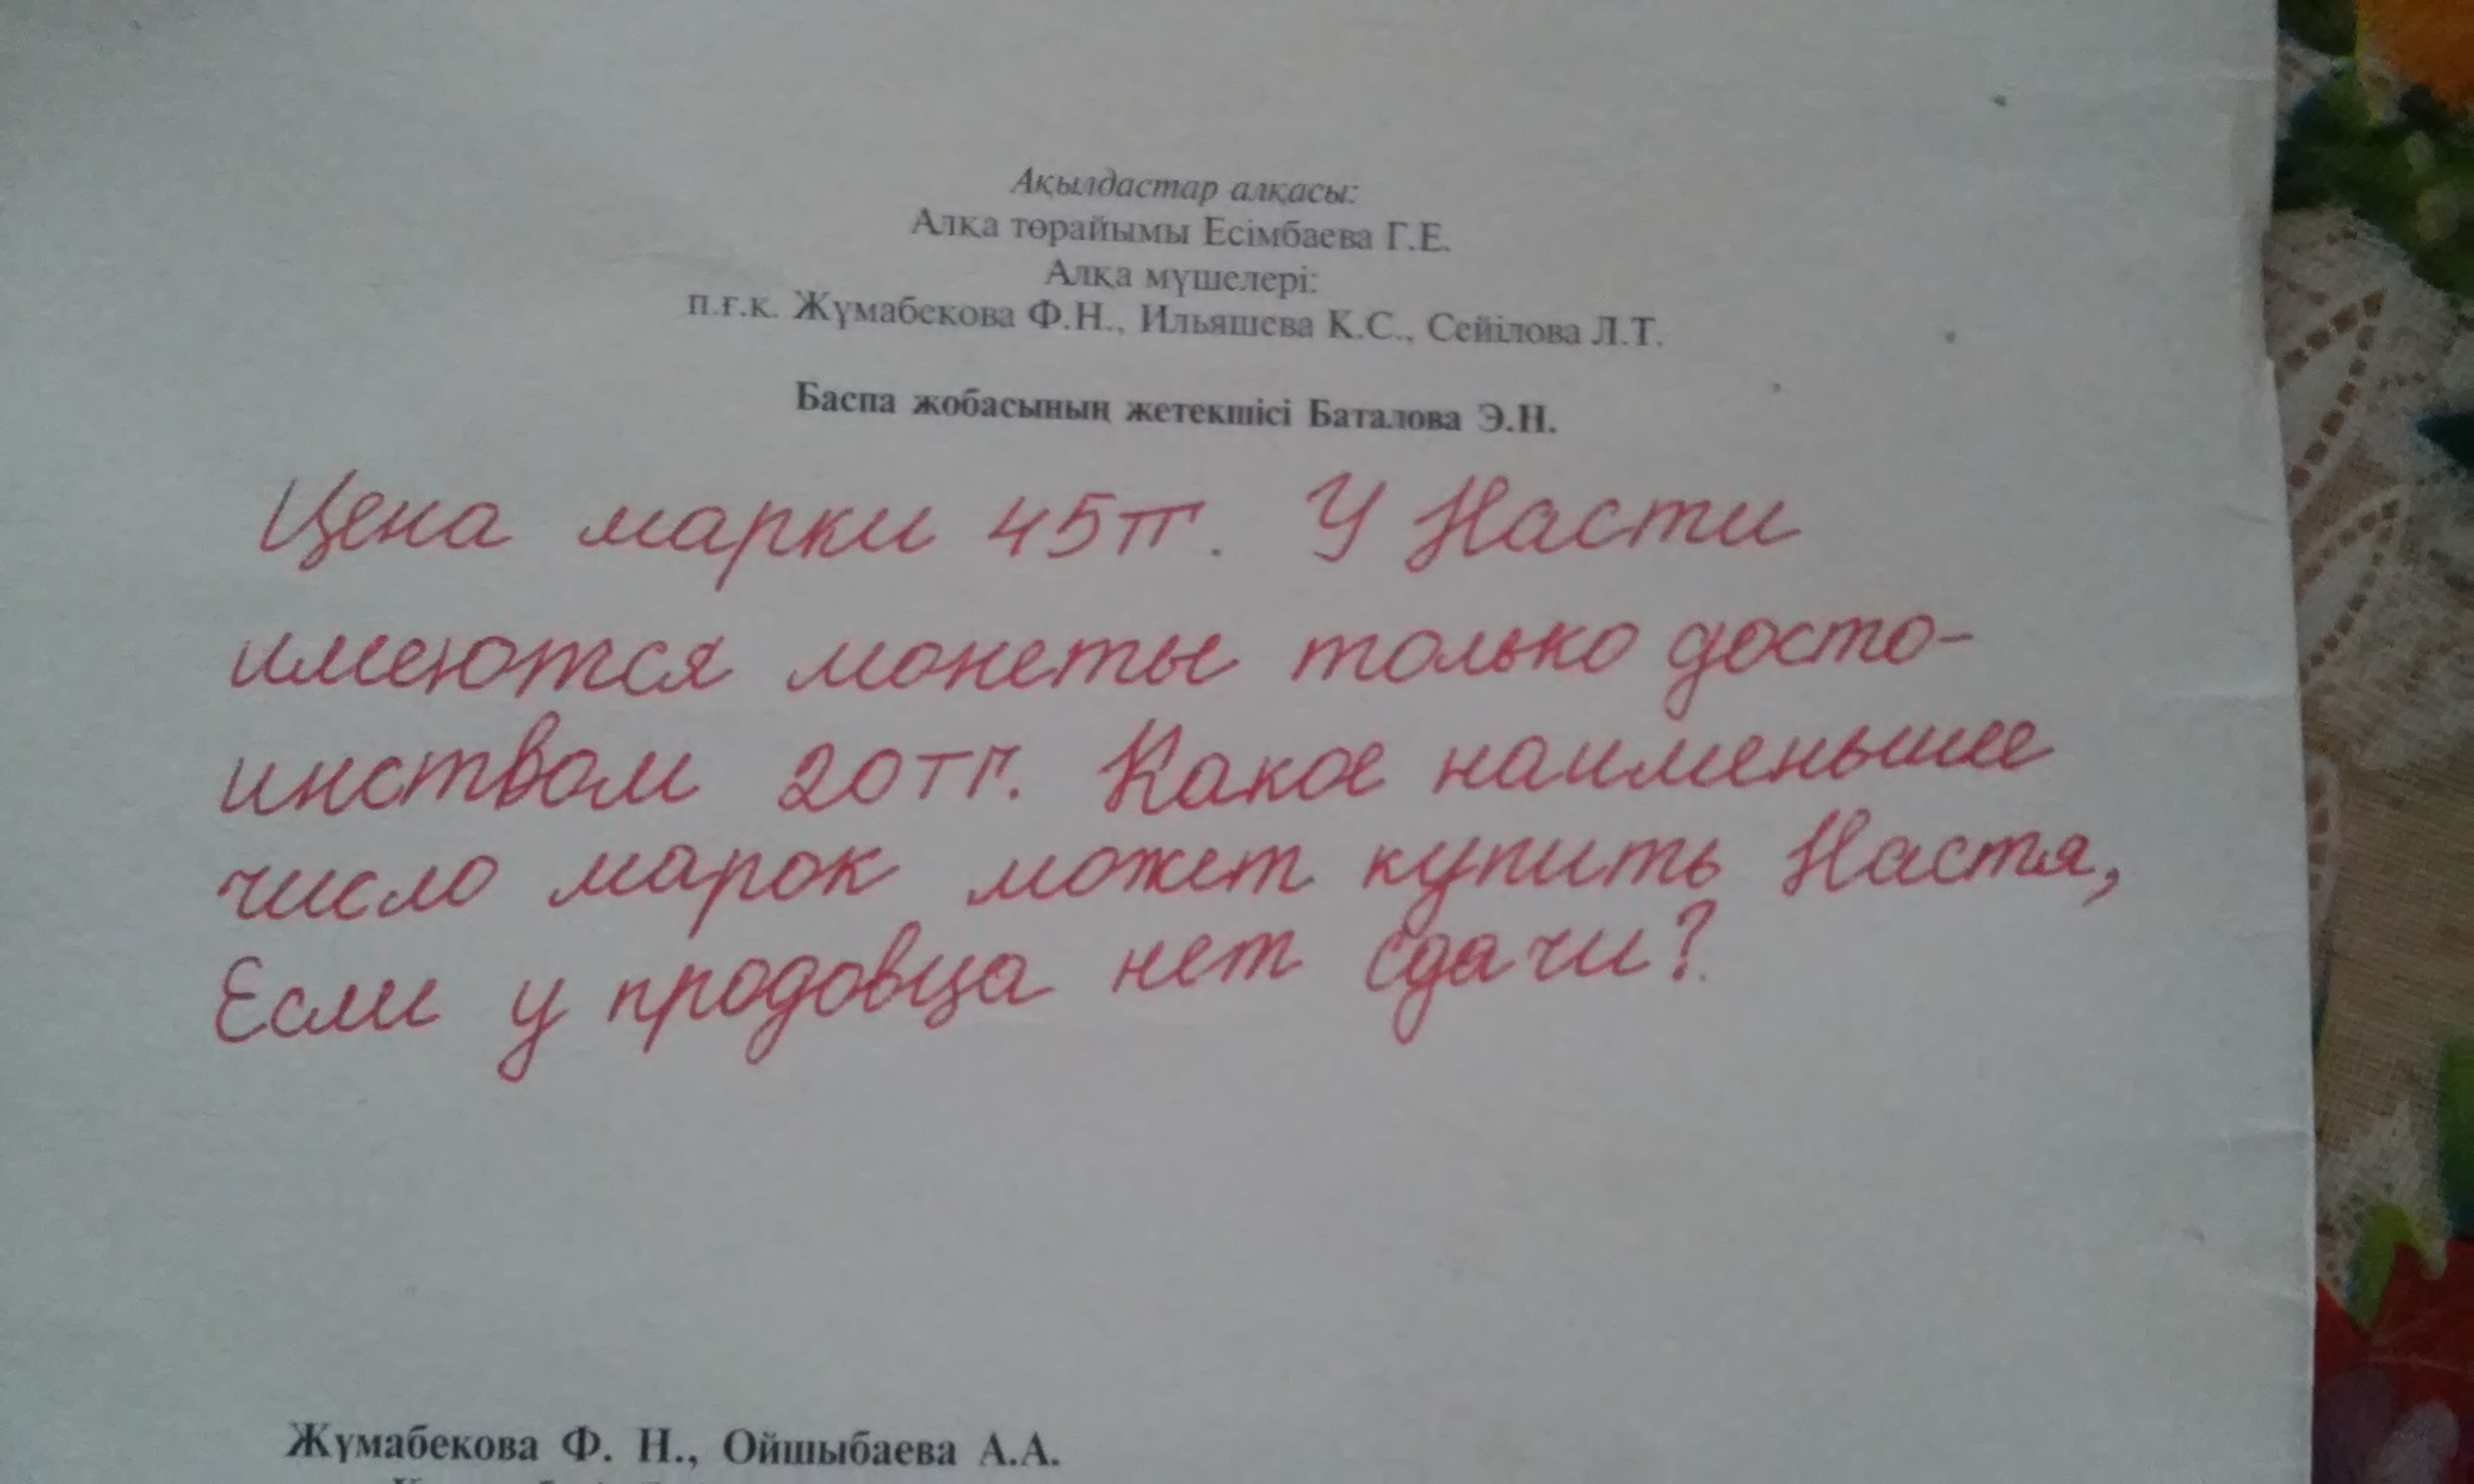 Ақылдастар алқасы:
Алқа төрайымы Есімбаева Г.Е.
Алқа мүшелері:
п.ғ.к. Жұмабекова Ф.Н., Ильяшева К.С., Сейілова Л.Т.
Баспа жобасының жетекшісі Баталова Э.Н.
Цена марки 45тг. У Насти
имеются монеты только досто-
инством 20тг. Какое наименьшее
число марок может купить Настя,
Если у продовца нет сдачи?
Жұмабекова Ф. Н., Ойшыбаева А.А.